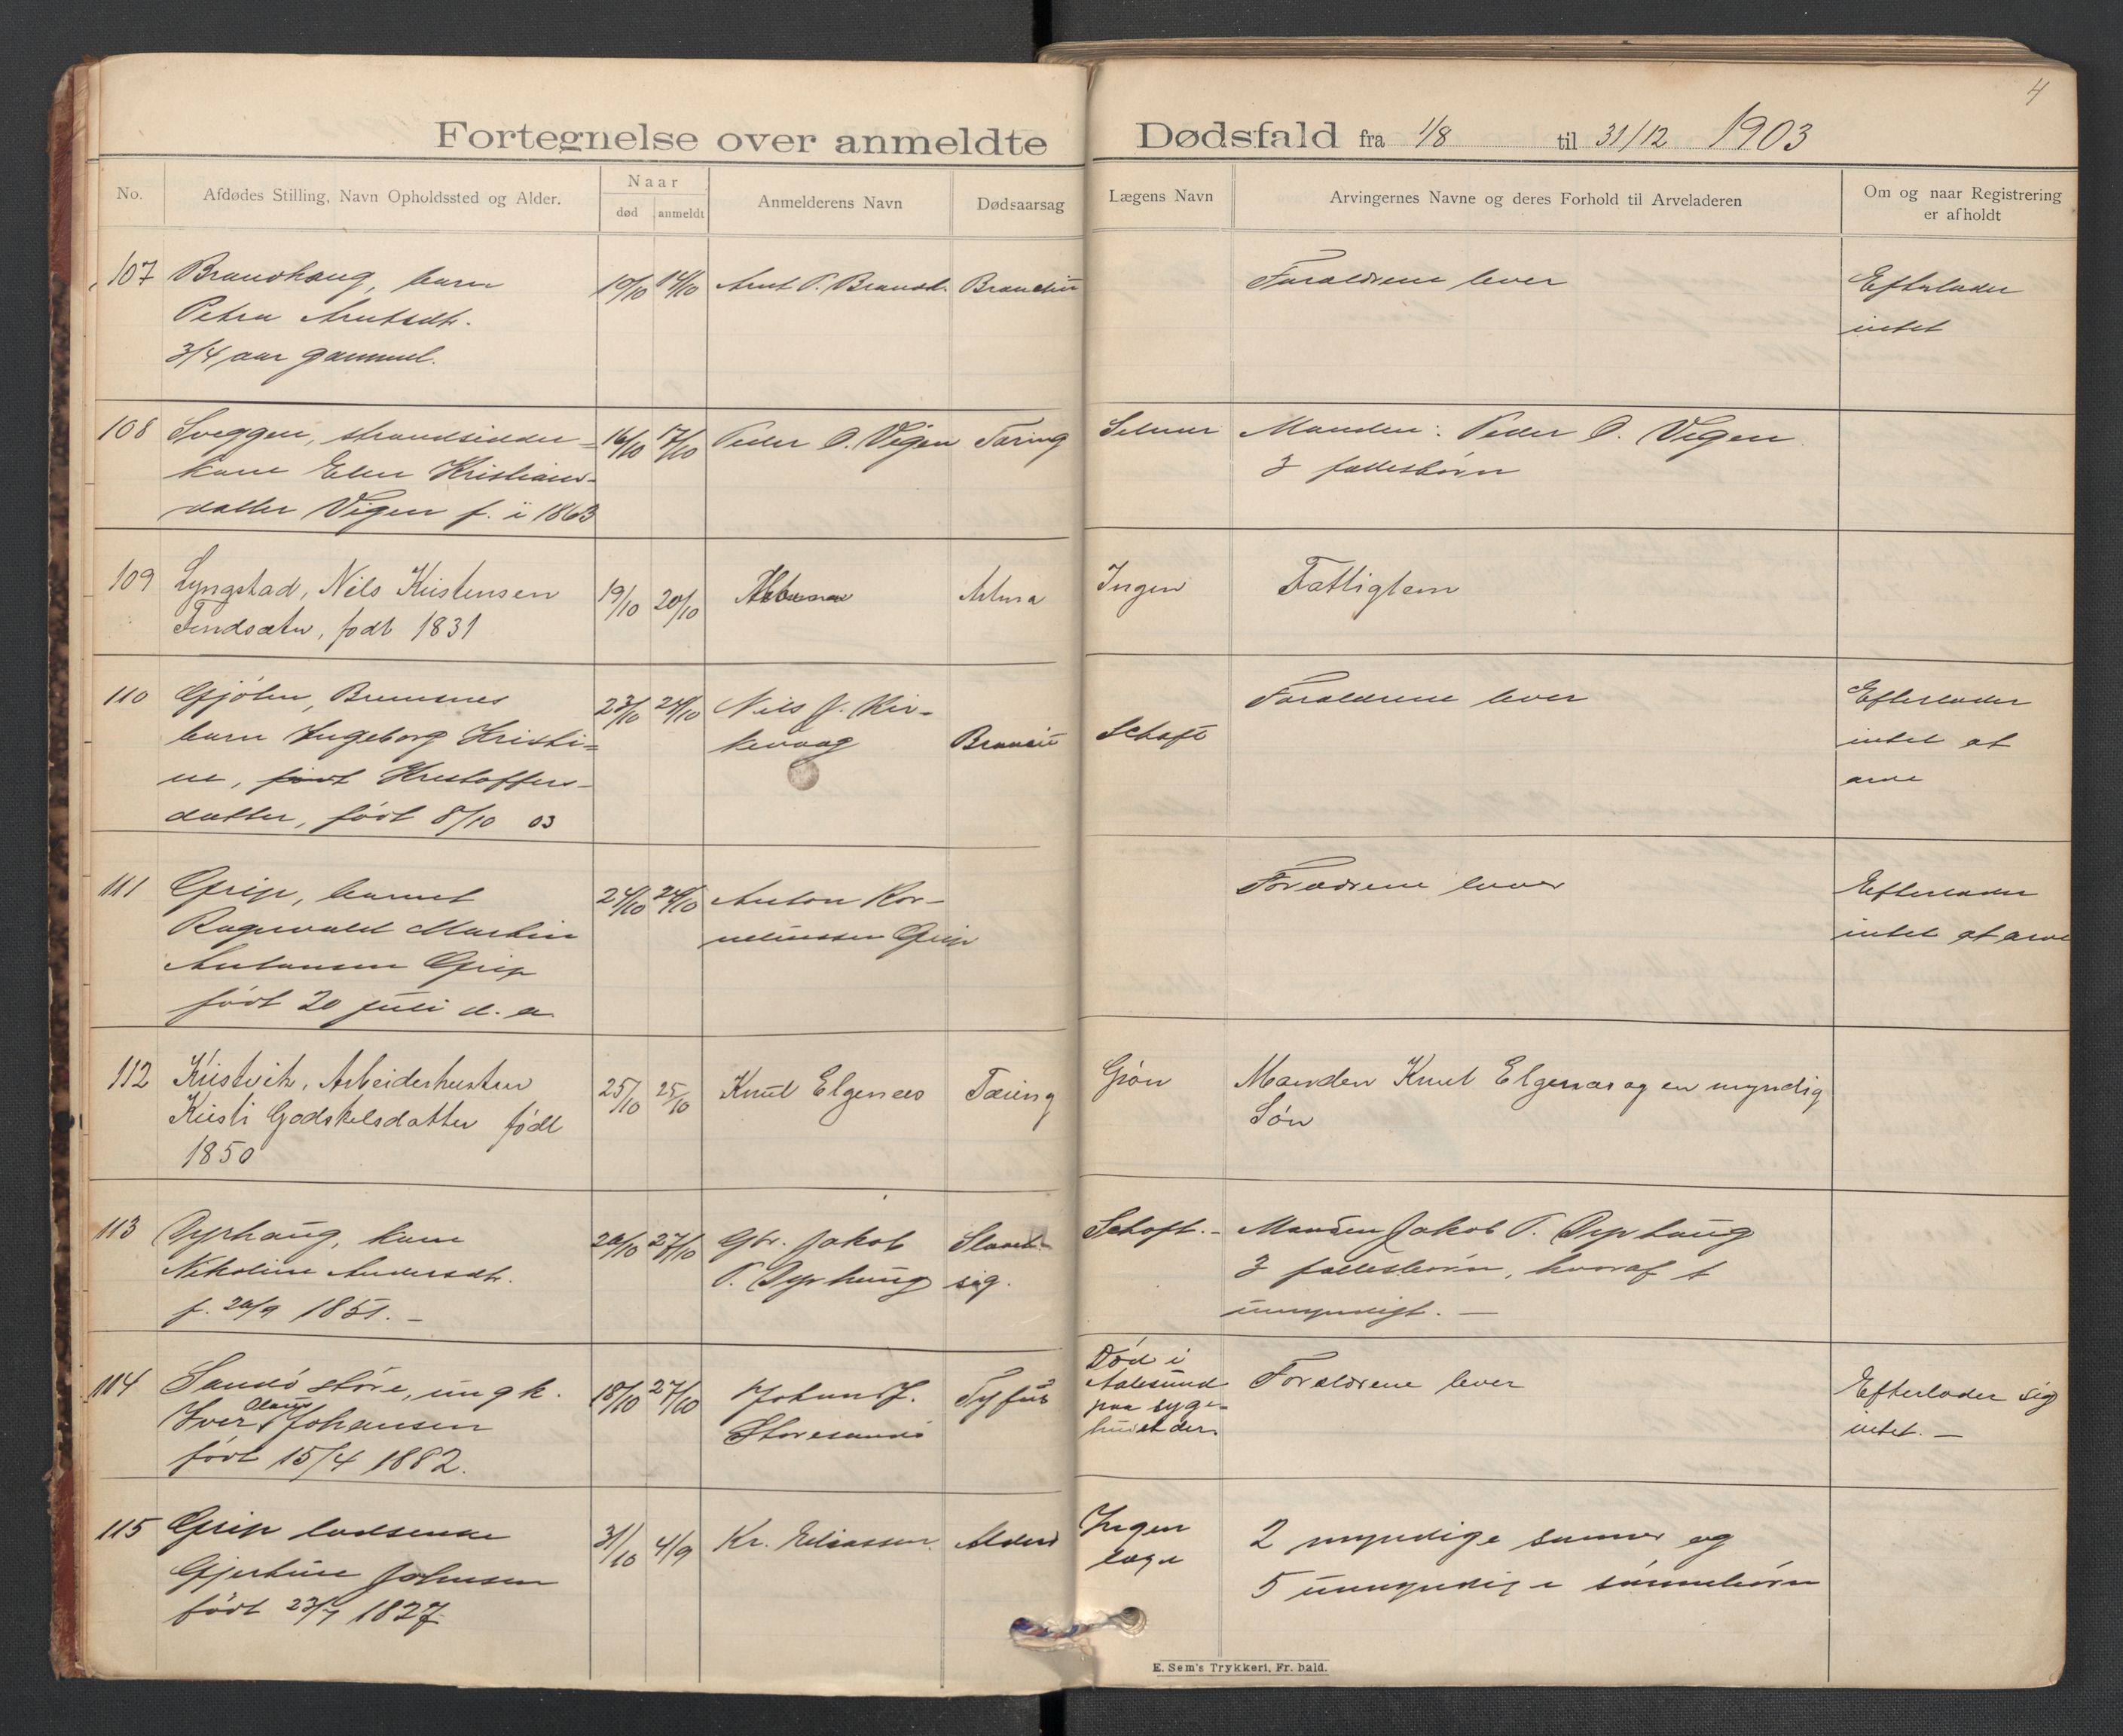 4
Fortegnelse over anmeldte Dødsfald fra 1/8 til 31/12 1903
No.
Afdødes Stilling, Navn Opholdssted og Alder.
Naar
død
anmeldt
Anmelderens Navn
Dødsaarsag
Lægens Navn
Arvingernes Navne og deres Forhold til Arveladeren
Om og naar Registrering
er afholdt
107 Brandhaug, barn 10/10 14/10 Arnt P. Brandh. Forældrene lever Efterlader
Petra Arntsdtr. intet
3/4 aar gammel.
108 Sveggen, strandsidder- 16/10 17/10 Peder O. Vigen Tæring Selmer Manden: Peder O. Vigen
kone Elen Kristians- 3 fællesbörn
datter Vigen f. i 1863
109 Lyngstad, Nils Kristensen 19/10 20/10 Astma Ingen Fattiglem
Tendsæter, født 1831
110 Gjölen, Bremsnes 23/10 24/10 Nils J. Kir- Forældrene lever Efterlader
barn Ingeborg Kristi- kevaag Schøft intet at
ne, födt Kristoffers- arve
datter, födt 8/10 03
111 Grip, barnet 24/10 24/10 Anton Kor- Forældrene lever Efterlader
Ragnvald Martin neliussen Grip intet at arve
Antonsen Grip
födt 20 juli d. a.
112 Kristvik, Arbeiderhustru 25/10 25/10 Knut Elgenæs Tæring Grøn Manden Knut Elgenæs og en myndig
Kirsti Godskelsdatter født Søn
1850
113 Dyrhaug, kone 27/10 Gbr. Jakob Schøft. - Manden Jakob P. Dyrhaug
Nikoline Andersdtr. P. Dyrhaug sig. 3 fællesbörn, hvoraf 1
1851. - umyndigt. -
114 Sandö store, ungk. 18/10 27/10 Johan J. Tyfus Död i Aalesund paa syge- huset der. Forældrene lever Efterlader sig
Iver Olaus Johansen Storesandö intet. -
född 15/4 1882.
115 Grip lodsenke 31/10 4/9 Kr. Eliassen. Ingen 2 myndige sønner og
Gjertine Johnsen læge 5 umyndige sönnebörn
födt 1827
E. Sem's Trykkeri, Fr. hald.